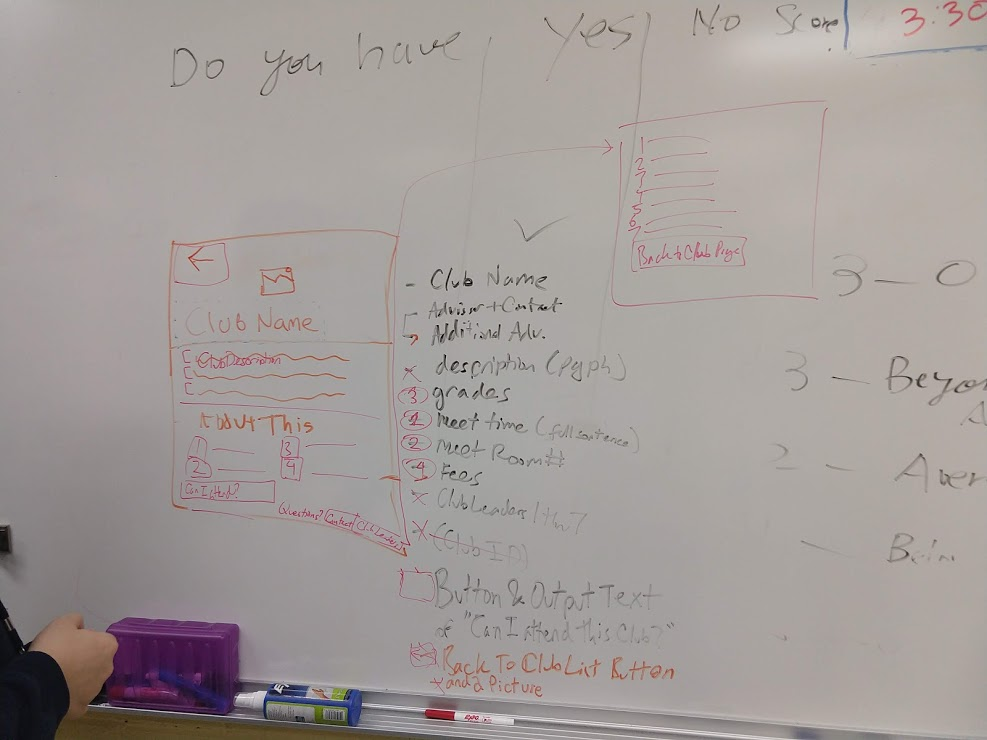 Do you have Yes No Score
3:30
1
2
3
4
5
6
7
Back to Club Page
←
Club Name
Club Description
About This
1
2
3
4
Can I attend?
Questions? Contact Club Leaders
- Club Name
Advisor + Contact
Additional Adv.
x description (pgph)
3 grades
1 Meet time (full sentence)
2 Meet Room #
4 Fees
x Club Leaders
x (Club ID)
Button & Output Text
of "Can I attend this Club?"
Back To Club List Button
x and a Picture
3 - 0
3 - Beyon
A
2 - Aver
EXPO